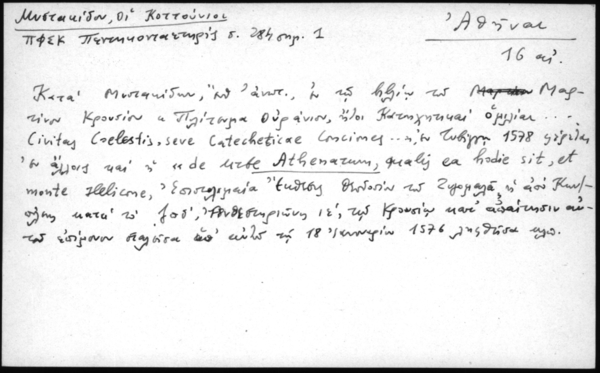 Μυστακίδου, Οἱ Κοττούνιοι
ΠΦΣΚ Πεντηκονταετηρὶς σ. 284 σημ. 1
Ἀθῆναι
16 αἰ.
Κατὰ Μυστακίδην, ἔνθ' ἀνωτ., ἐν τῷ βιβλίῳ τοῦ Μαρ-
τίνου Κρουσίου « Πολίτευμα Οὐράνιον, ἤτοι Κατηχητικαὶ ὁμιλίαι ...
Civitas Coelestis, seve Catecheticae Conciones ... ἐν Τυβίγγῃ 1578
ἐν ἄλλοις καὶ ἡ « de urbe Athenarum, qualis ea hodie sit, et
monte Helicone, Ἐπιστολιμαία Ἔκθεσις Θεοδοσίου τοῦ Ζυγομαλᾶ, ἡ ἀπὸ Κων)-
πόλεως κατὰ τὸ Ἀνθεστηριῶνος ιε', τῷ Κρουσίῳ κατ' ἀπαίτησιν αὐ-
τοῦ σταλεῖσα ὑπ' αὐτοῦ τῇ 18 Ἰανουαρίου 1576 ληφθεῖσα κλπ.